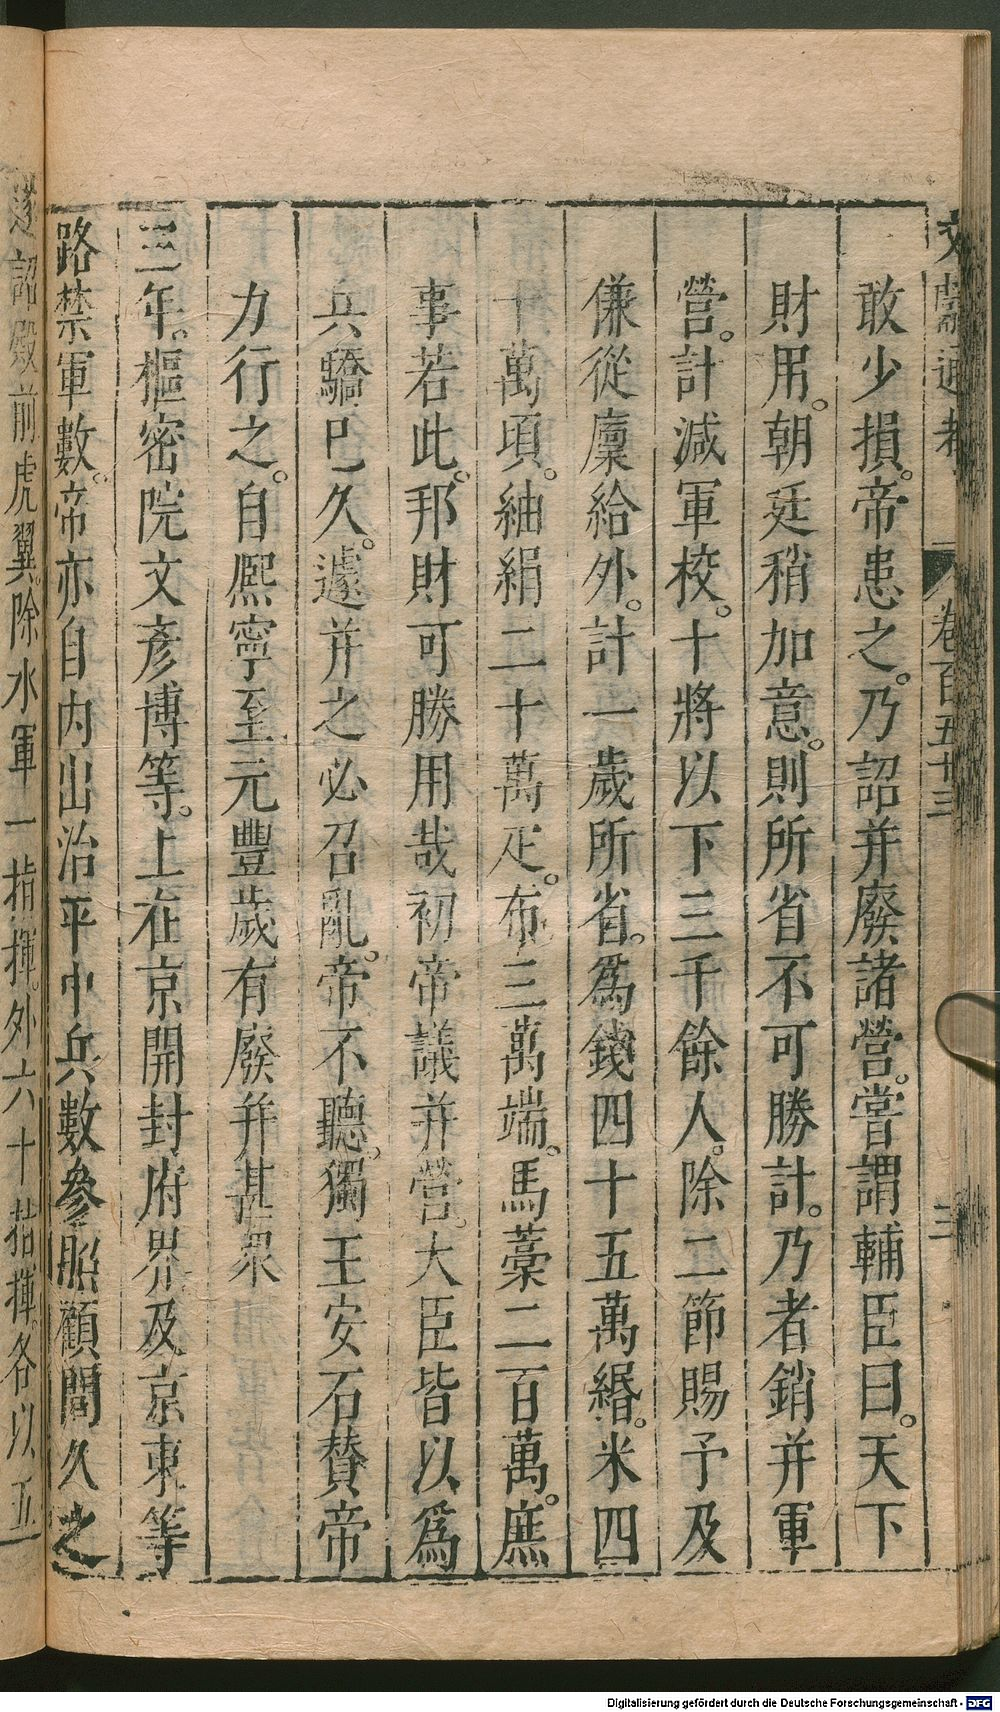 文獻通考 卷百五十三 三
敢少損。帝患之。乃詔并廢諸營。嘗謂輔臣曰。天下
財用。朝廷稍加意。則所省不可勝計。乃者銷并軍
營。計減軍校。十將以下三千餘人。除二節賜予及
傔從廩給外。計一歲所省。爲錢四十五萬緡。米四
十萬頃。紬絹二十萬疋。布三萬端。馬藁二百萬。庶
事若此。邦財可勝用哉初帝議并營。大臣皆以爲
兵驕已久。遽并之必召亂。帝不聽。獨王安石贊帝
力行之。自熈寧至元豐歲有廢并甚衆
三年。樞密院文彥博等。上在京開封府界及京東等
路禁軍數。帝亦自內出治平中兵數參照顧問久之
遂詔殿前虎翼。除水軍一指揮。外六十指揮。各以五
Digitalisierung gefördert durch die Deutsche Forschungsgemeinschaft - DFG